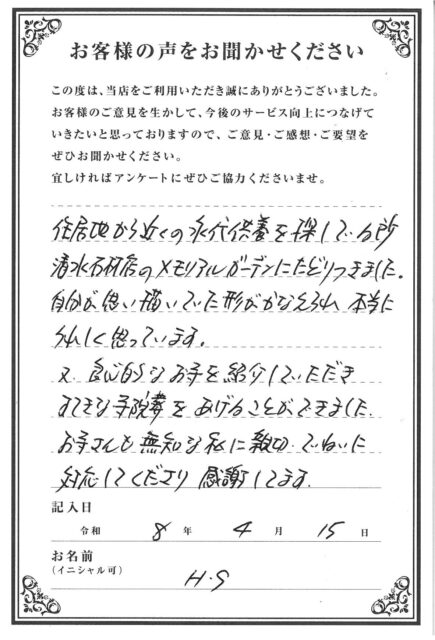 お客様の声をお聞かせください
この度は、当店をご利用いただき誠にありがとうございました。
お客様のご意見を生かして、今後のサービス向上につなげて
いきたいと思っておりますので、ご意見・ご感想・ご要望を
ぜひお聞かせください。
宜しければアンケートにぜひご協力くださいませ。
住居地から近くの永代供養を探している時
清水石材店のメモリアルガーデンにたどりつきました。
自分が思い描いていた形がかなえられ 本当に
うれしく思っています。
又、良心的なお寺を紹介していただき
すてきな寺院葬をあげることができました
お寺さんも無知な私に親切、ていねいに
対応してくださり 感謝してます。
記入日
令和 8 年 4 月 15 日
お名前
(イニシャル可)
H・S